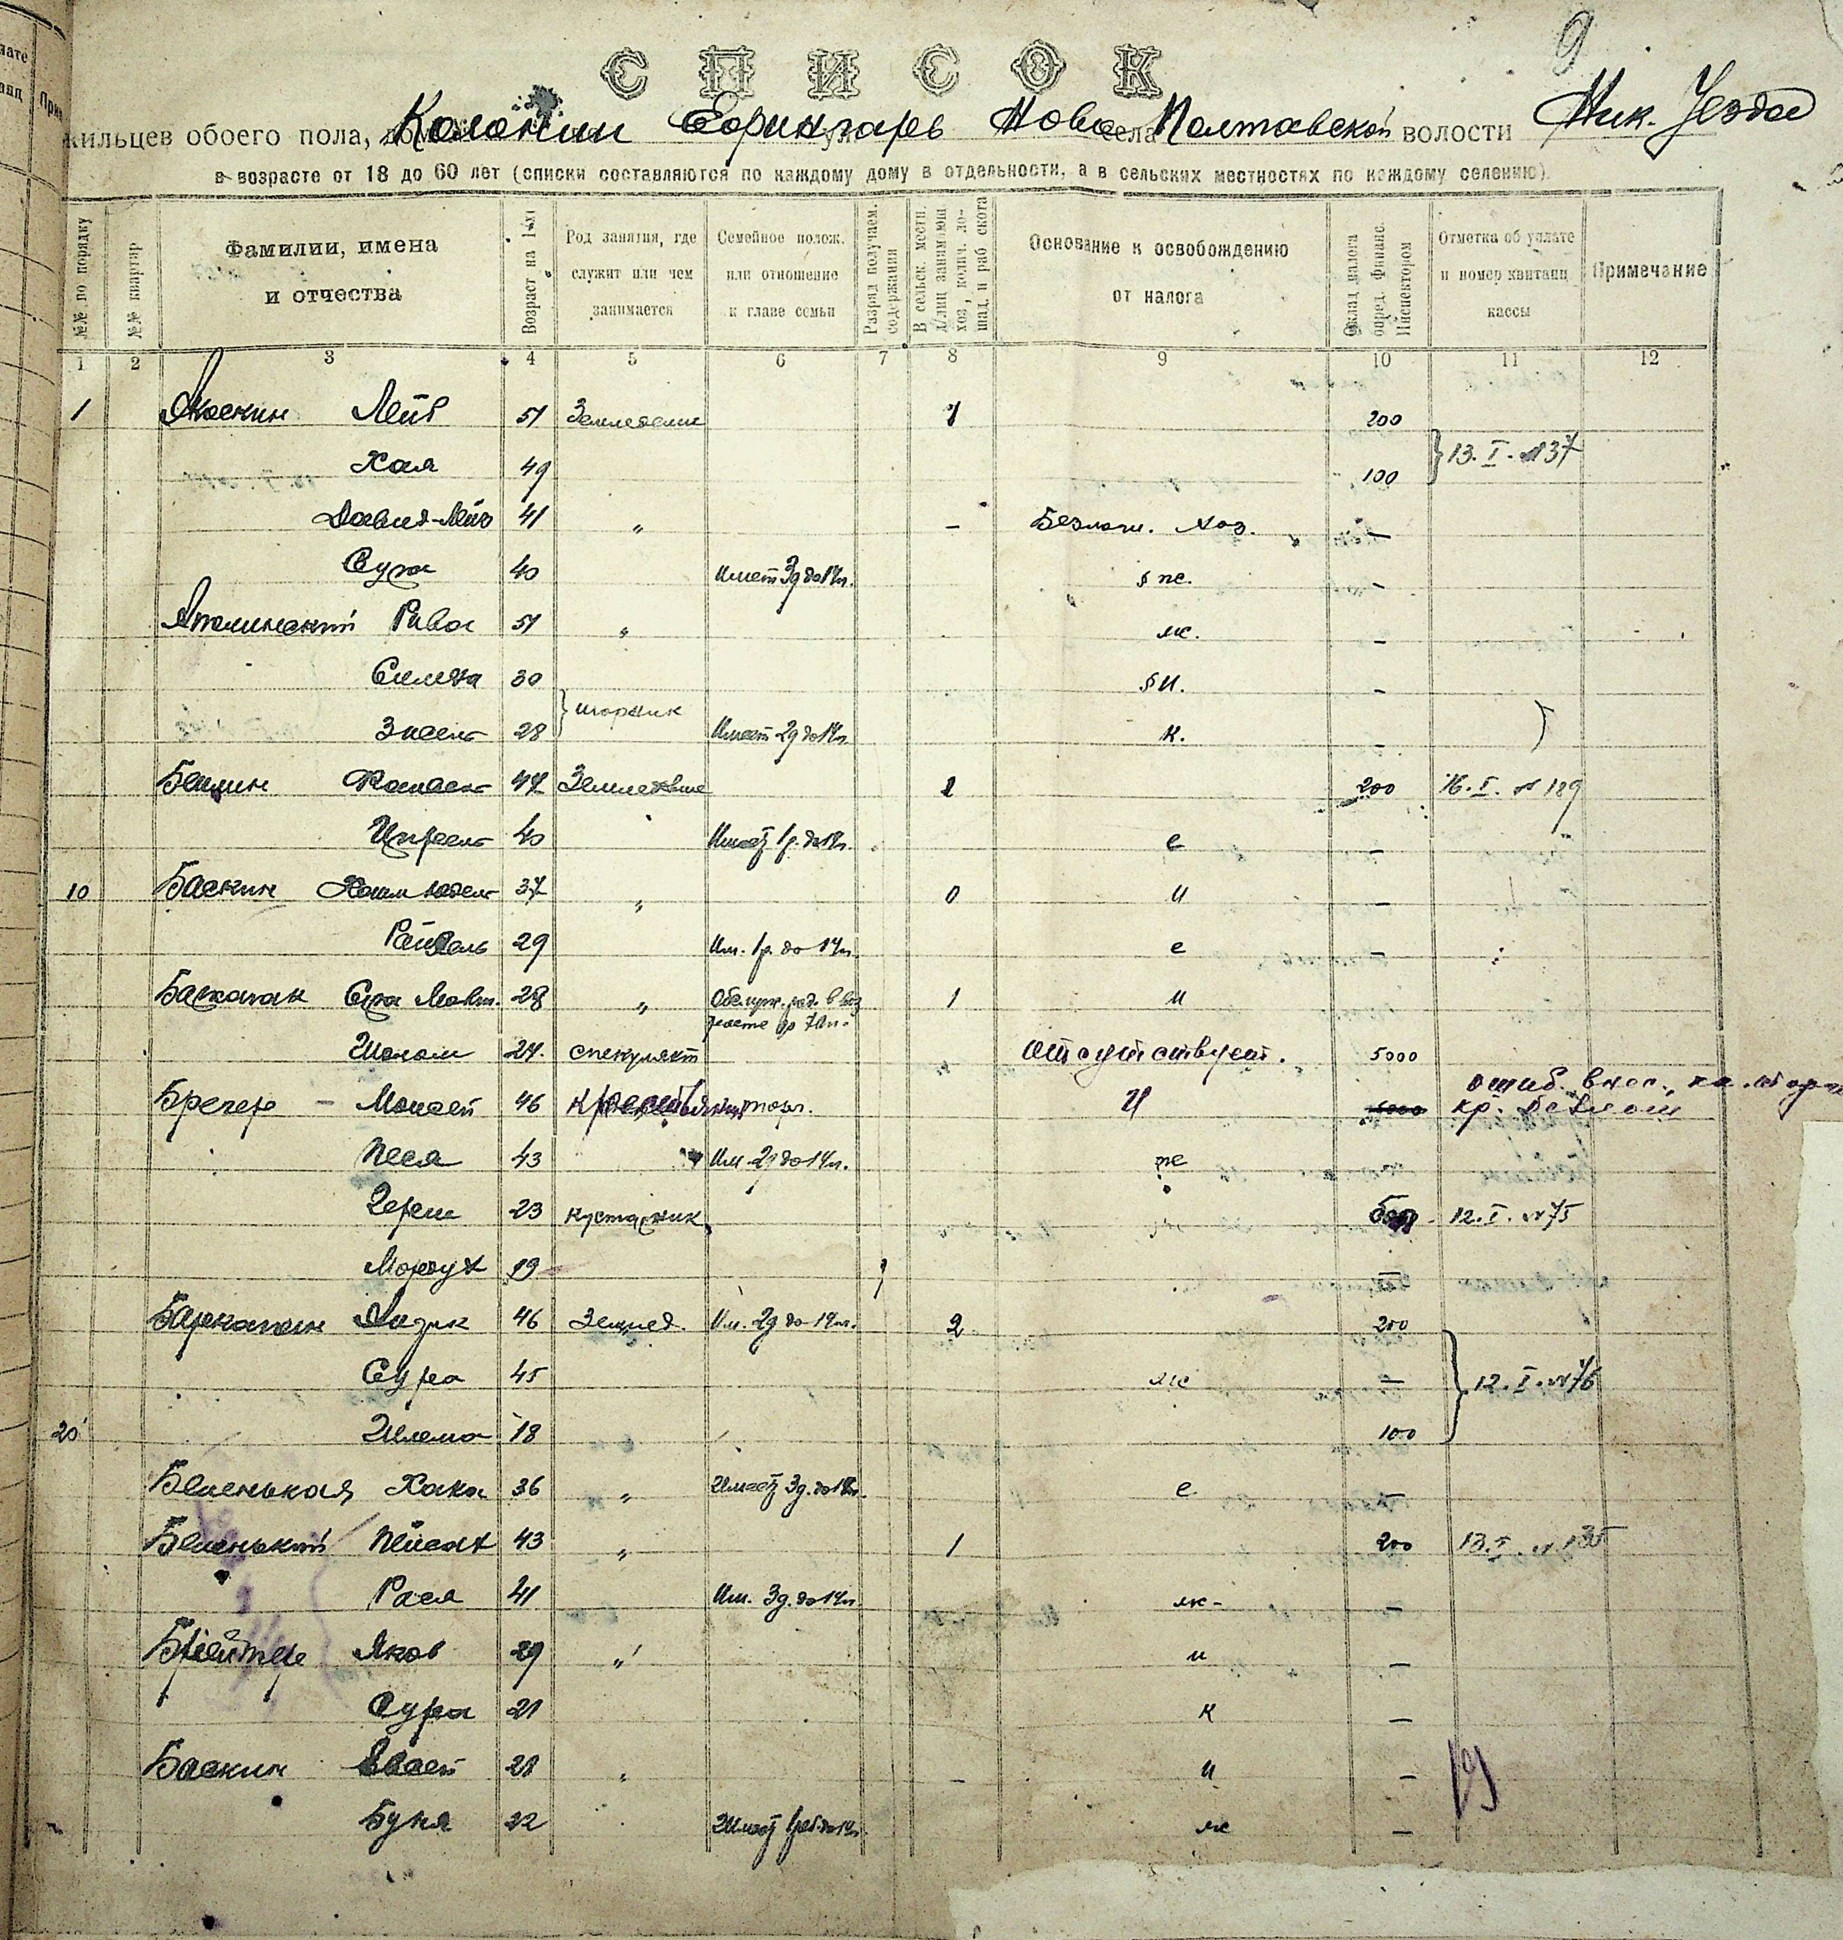 9
СПИСОК
жильцев обоего пола, Колонии Ефингарь Ново села Полтавской волости Ник. Уезда
в возрасте от 18 до 60 лет (списки составляются по каждому дому в отдельности, а в сельских местностях по каждому селению).
№№ по порядку
№№ квартир
Фамилии, имена и отчества
Возраст на 1
Род занятия, где служит или чем занимается
Семейное полож. или отношение к главе семьи
Разряд получаем. содержания
В сельск. местн. хоз., колич. ло- шад. и раб скота
Основание к освобождению от налога
Оклад налога опред. Финанс. Инспектором
Отметка об уплате и номер квитанц кассы
Примечание
1 2 3 4 5 6 7 8 9 10 11 12
1 Лейб 51 Земледелие 1 200
Хая 49 100 13. I. № 137
Давид-Лейб 41 „ — Безлош. хоз. —
Сура 40 Имеет 3д до 14л. —
Рива 51 „ же. —
Симха 30 §и. —
28 шорник Имеет 2д до 14л. к. —
Белин 47 Земледелие 2 200 16. I. № 189
40 Имеет 1р. до 14л. е —
10 Баскин Хаим 37 „ 0 и —
Райзель 29 Им. 1р. до 14л. е —
28 „ 1 и
Шолом 27. спекулянт отсутствует. 5000
Брегер – Моисей 46 и
Песя 43 Им. 2д до 14л. же
Герш 23 кустарник 12. I. № 75
Мордух 19 —
Айзик 46 Землед. Им. 2д до 14л. 2 200
Сура 45 же — 12. I. № 76
20 Шлема 18 100
Беленькая Хана 36 „ Имеет 3д. до 14л. е —
Беленький Пейсах 43 „ 1 200 13. I. № 135
Рася 41 Им. 3д. до 14л же - —
Яков 29 „ и —
Сура 21 к —
Баскин 28 „ — и —
Буня 22 Имеет 1реб. до 14л. же —